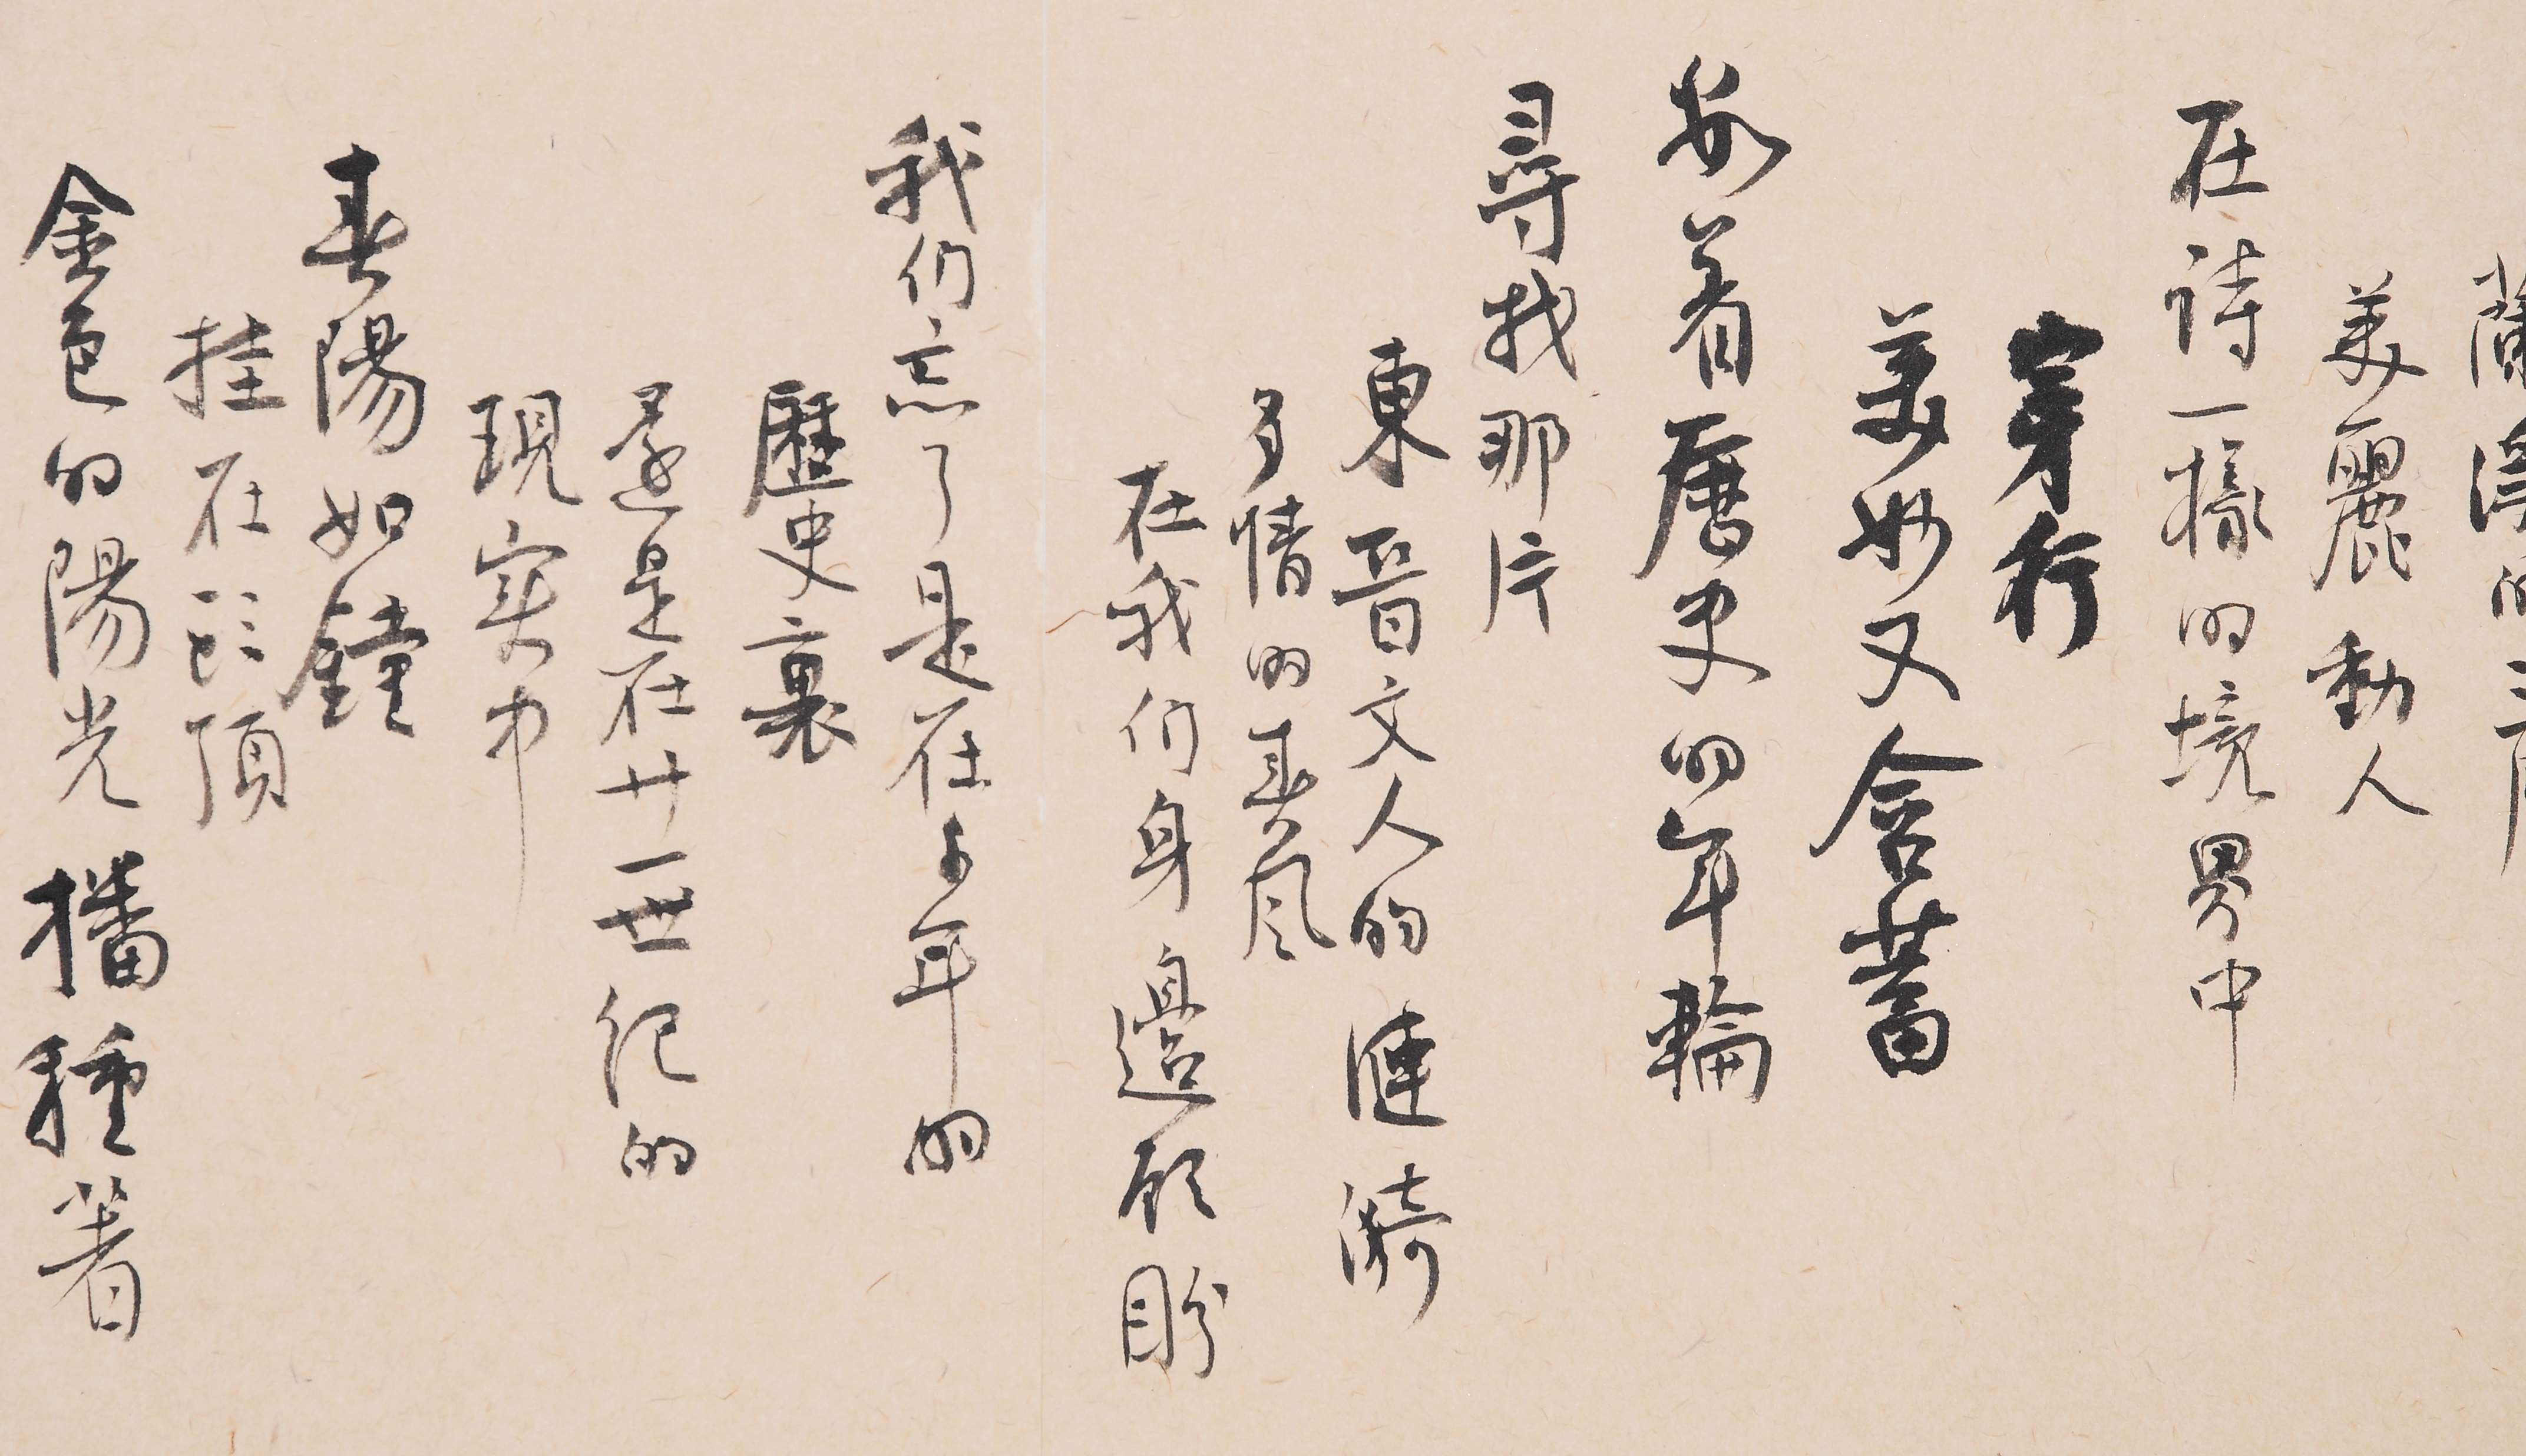 蘭的三月
美麗動人
在诗一樣的境界中
穿行
美妙又含蓄
着歷史的年輪
尋找那片
東晋文人的漣漪
多情的春风
在我们身邊顾盼
我们忘了是在千年的
歷史裏
還是在廿一世纪的
現実中
春陽如鐘
挂在頭頂
金色的陽光播種着